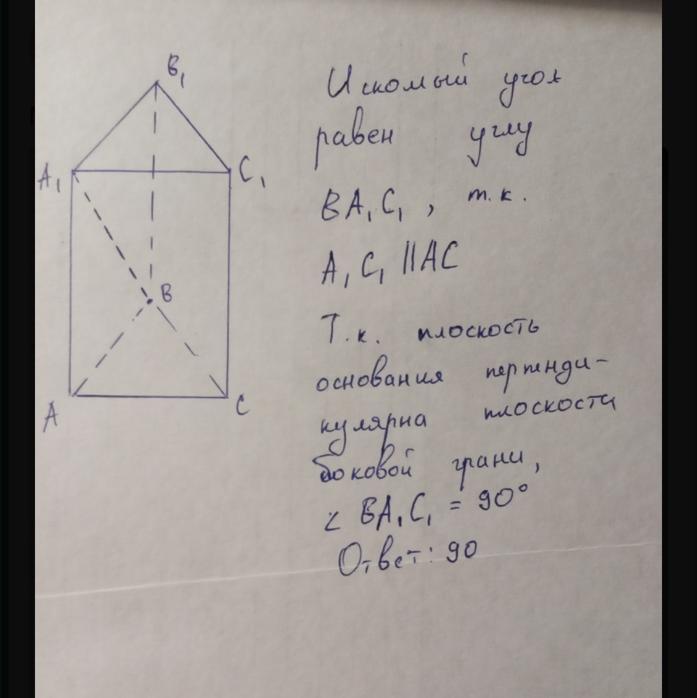 B₁
A₁
C₁
B
A
C
Искомый угол
равен углу
BA₁C₁, т.к.
A₁C₁ || AC
Т.к. плоскость
основания перпенди-
кулярна плоскости
боковой грани,
∠ BA₁C₁ = 90°
Ответ: 90